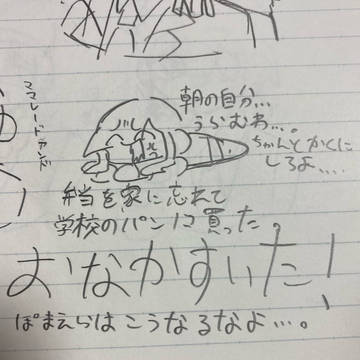 ママレード・アンド
朝の自分…
うらむわ…。
ちゃんとかくに
しろよ….
弁当を家に忘れて
学校のパン1コ買った
おなかすいた!
ぽまえらはこうなるなよ…。